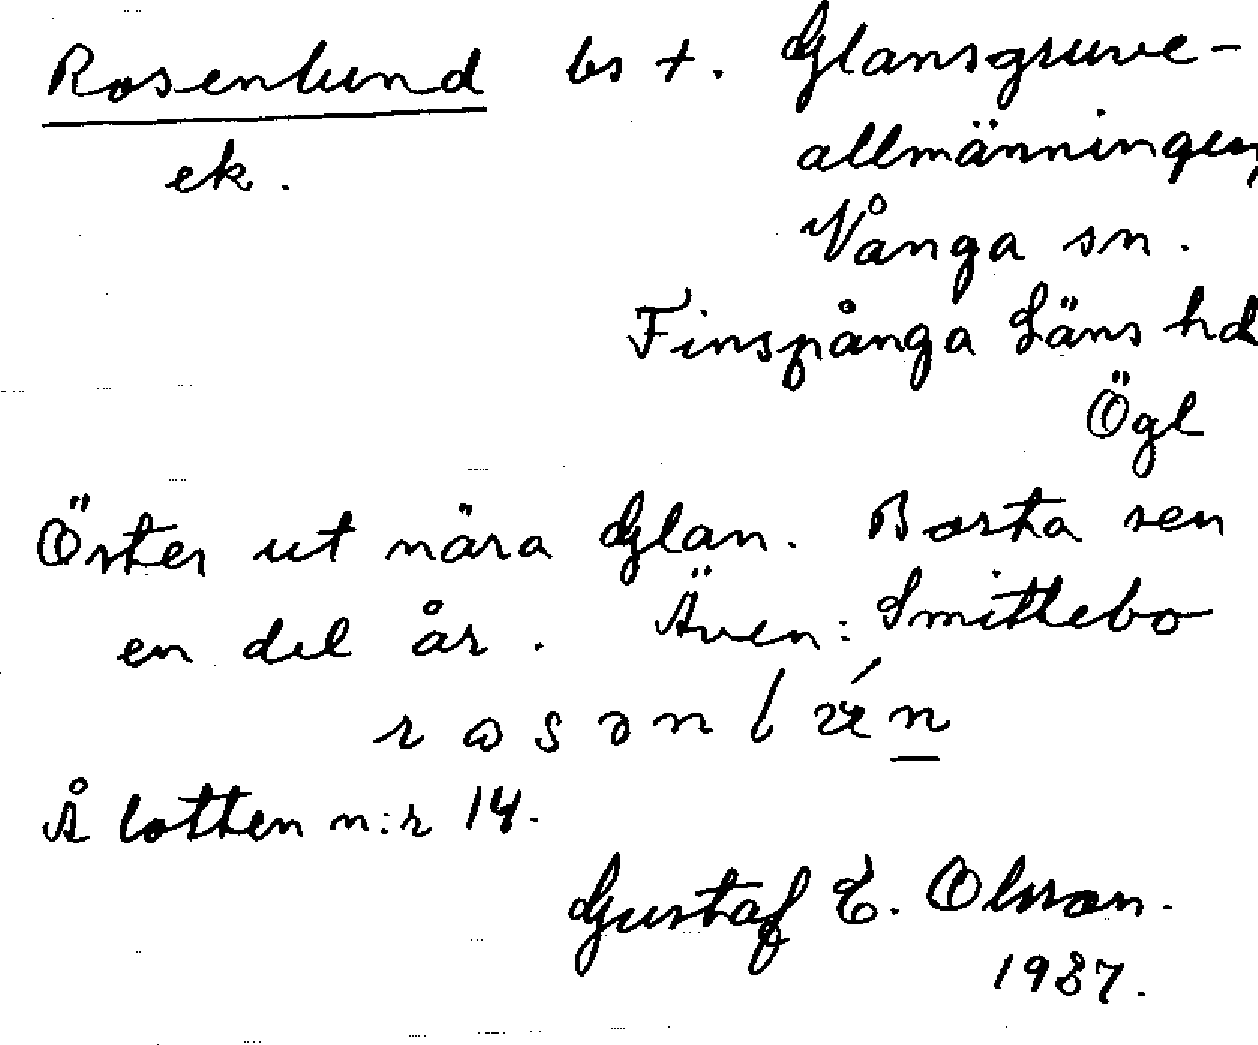 Rosenlund bs +. Glansgruve-
ek. allmänningen,
Vånga sn.
Finspånga Läns hd
Ögl
Öster ut nära Glan. Borta sen
en del år. Även: Smittebo
Å lotten n:r 14.
Gustaf E. Olsson.
1937.